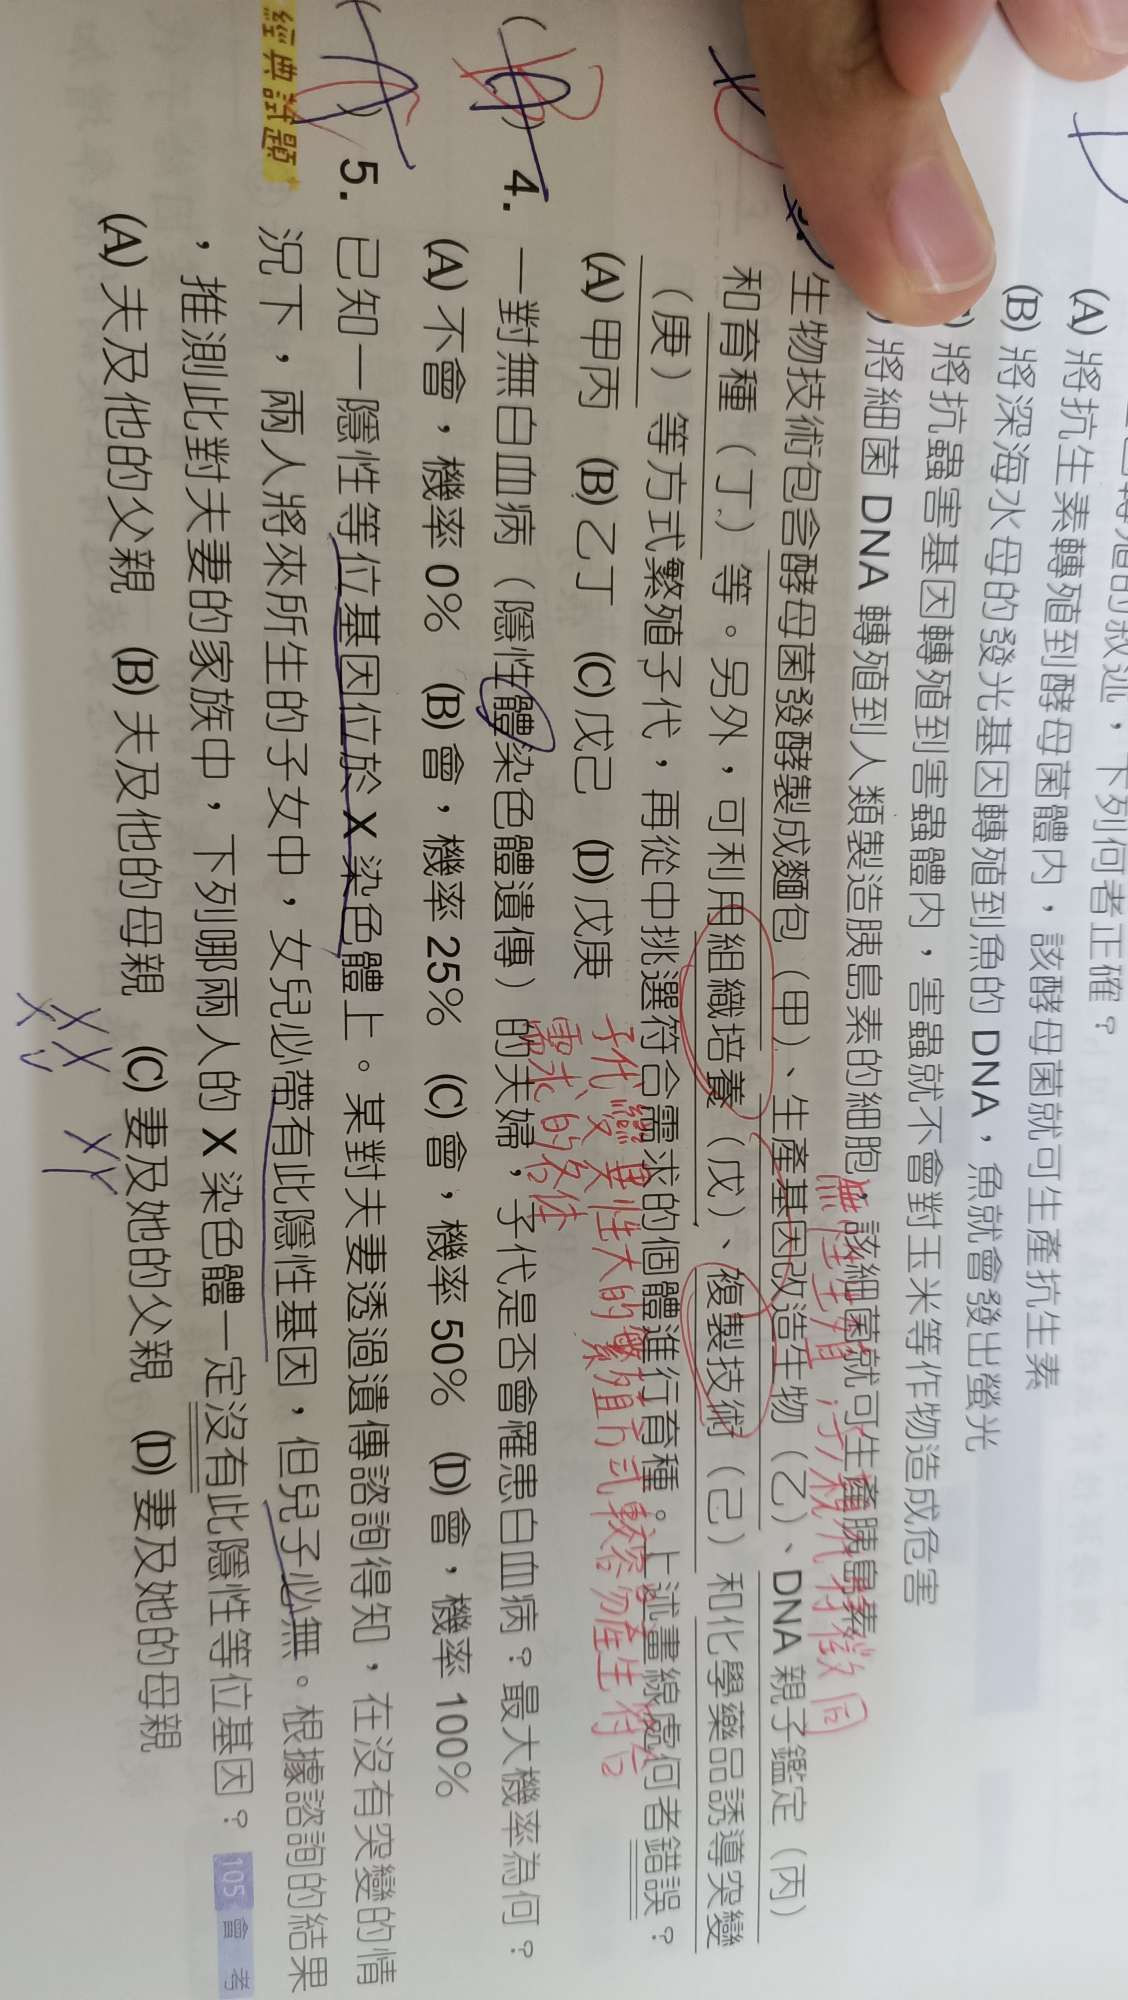 轉殖的敘述，下列何者正確？
(A) 將抗生素轉殖到酵母菌體內，該酵母菌就可生產抗生素
(B) 將深海水母的發光基因轉殖到魚的 DNA，魚就會發出螢光
將抗蟲害基因轉殖到害蟲體內，害蟲就不會對玉米等作物造成危害
將細菌 DNA 轉殖到人類製造胰島素的細胞，該細菌就可生產胰島素
無性生殖 子親代特徵同
生物技術包含酵母菌發酵製成麵包（甲）、生產基因改造生物（乙）、DNA 親子鑑定（丙）
和育種（丁）等。另外，可利用組織培養（戊）、複製技術（己）和化學藥品誘導突變
（庚）等方式繁殖子代，再從中挑選符合需求的個體進行育種。上述畫線處何者錯誤？
(A) 甲丙 (B) 乙丁 (C) 戊己 (D) 戊庚
子代變異性大的繁殖方式較容易產生符合
需求的各体
4. 一對無白血病（隱性體染色體遺傳）的夫婦，子代是否會罹患白血病？最大機率為何？
(A) 不會，機率 0% (B) 會，機率 25% (C) 會，機率 50% (D) 會，機率 100%
5. 已知一隱性等位基因位於 X 染色體上。某對夫妻透過遺傳諮詢得知，在沒有突變的情
經典試題
況下，兩人將來所生的子女中，女兒必帶有此隱性基因，但兒子必無。根據諮詢的結果
，推測此對夫妻的家族中，下列哪兩人的 X 染色體一定沒有此隱性等位基因？ 105 會考
(A) 夫及他的父親 (B) 夫及他的母親 (C) 妻及她的父親 (D) 妻及她的母親
XX XY